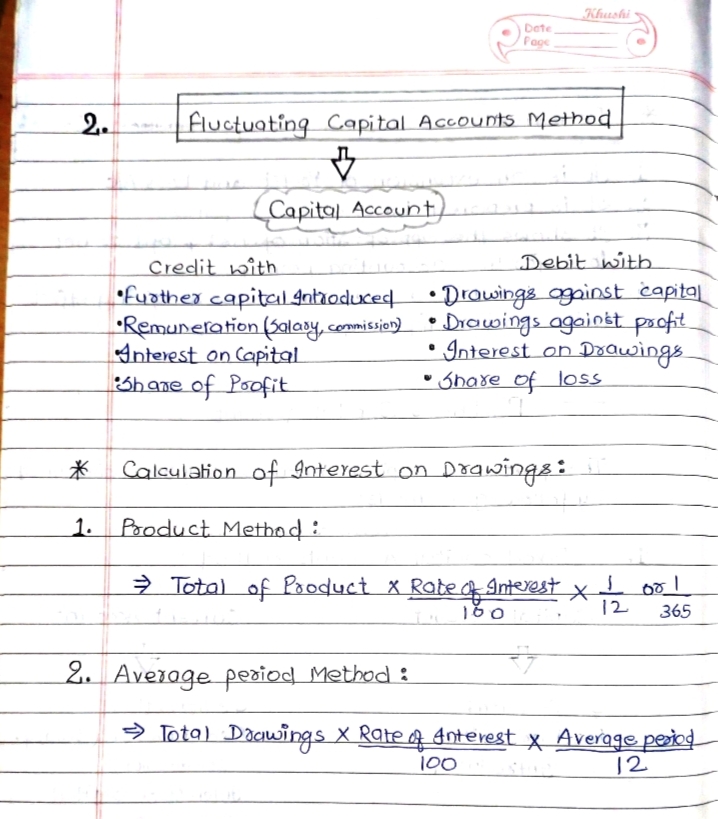 Khushi
Date
Page
2. Fluctuating Capital Accounts Method
⇓
Capital Account
Credit with Debit with
•Further capital Introduced • Drawings against capital
•Remuneration (Salary, commission) • Drawings against profit
•Interest on Capital • Interest on Drawings
•Share of Profit • Share of loss
* Calculation of Interest on Drawings:
1. Product Method:
⇒ Total of Product × Rate of Interest/100 × 1/12 or 1/365
2. Average period Method:
⇒ Total Drawings × Rate of Interest/100 × Average period/12